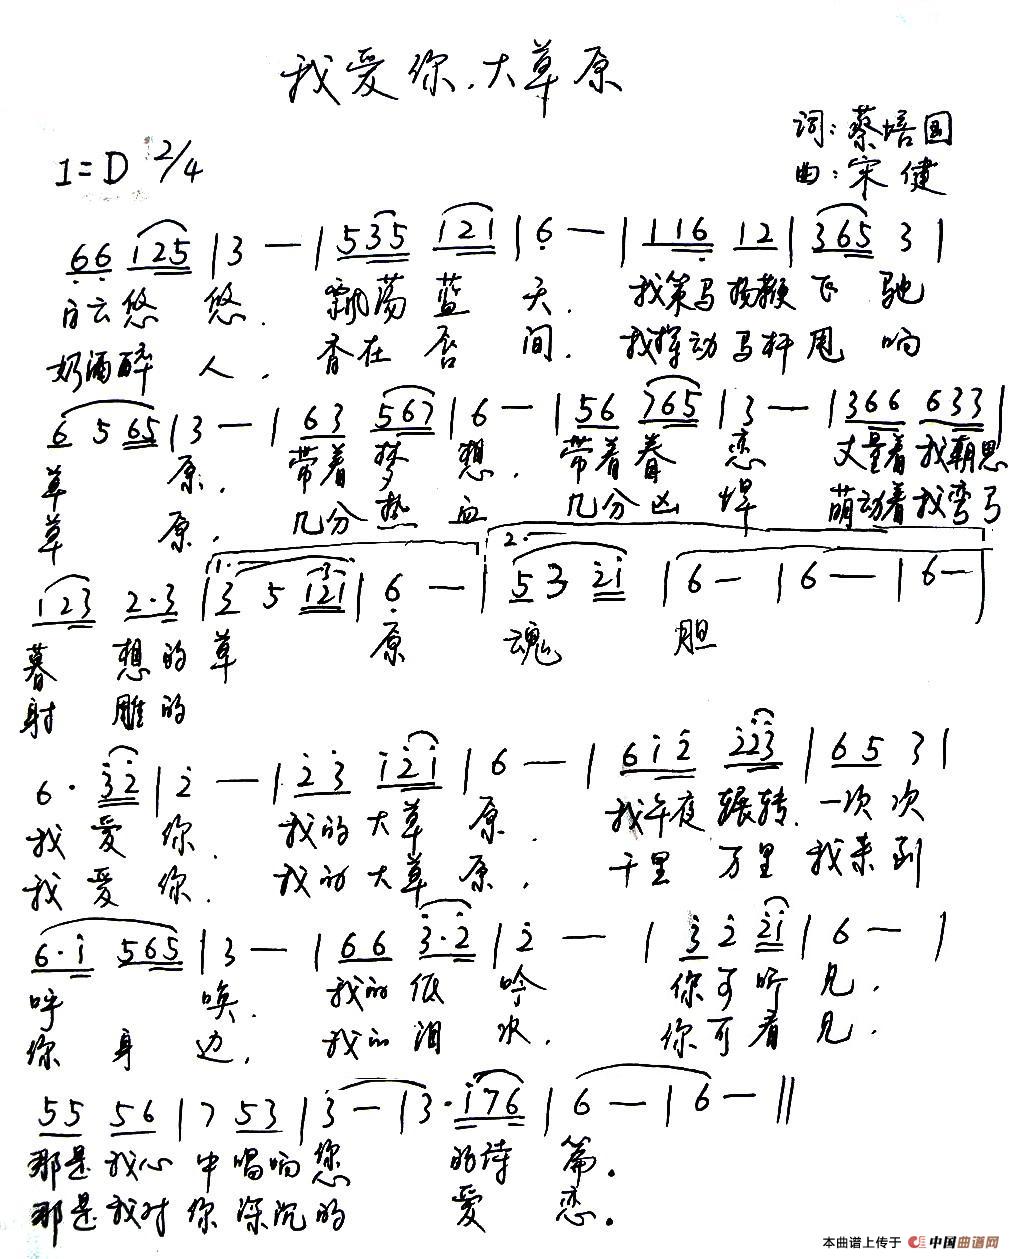 我爱你,大草原
词:蔡培国
1=D 2/4
曲:宋健
66 125 | 3 — | 535 121 | 6 — | 116 12 | 365 3 |
白云悠悠. 飘荡蓝天. 我策马扬鞭飞驰
奶酒醉人, 香在唇间. 我挥动马杆甩响
6 5 65 | 3 — | 63 567 | 6 — | 56 765 | 3 — | 366 633 |
草原, 带着梦想, 带着眷恋 丈量着我朝思
草原, 几分热血 几分凶悍 萌动着我弯弓
1. 2.
123 2·3 | 3 5 121 | 6 — | 5 3 21 | 6 — | 6 — | 6 — |
暮想的草原 魂胆
射雕的
6· 32 | 2 — | 23 121 | 6 — | 612 223 | 65 3 |
我爱你. 我的大草原. 我午夜辗转.一次次
我爱你. 我的大草原, 千里万里我来到
6·1 565 | 3 — | 66 3·2 | 2 — | 3 2 21 | 6 — |
呼唤. 我的低吟 你可听见,
你身边, 我的泪水, 你可看见,
55 56 | 7 53 | 3 — | 3· 176 | 6 — | 6 — ‖
那是我心中唱响您的诗篇.
那是我对你深沉的爱恋.
本曲谱上传于 中国曲谱网